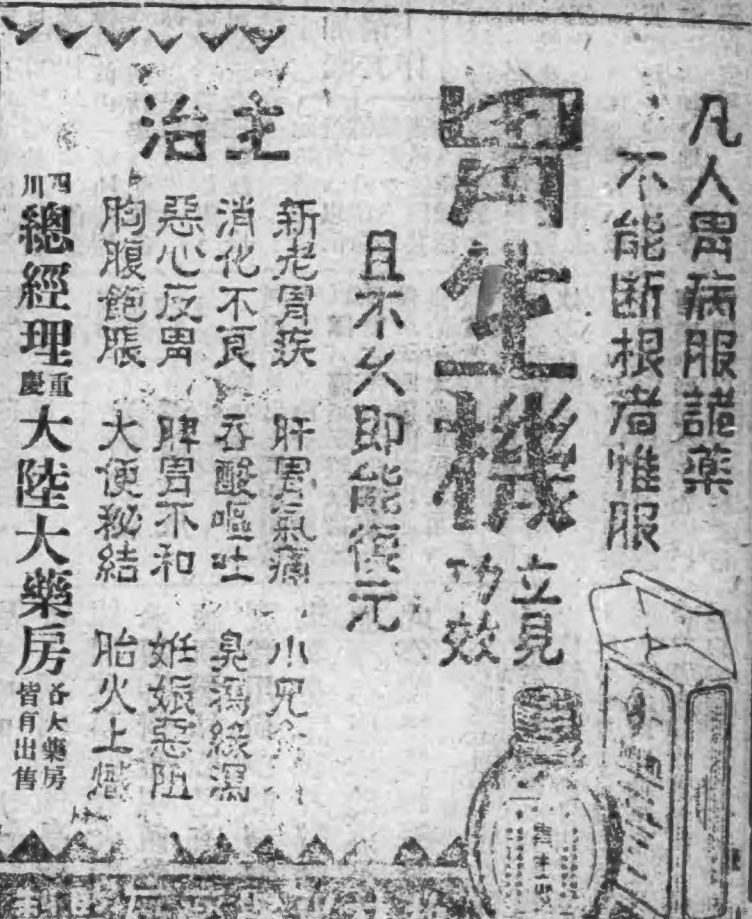 凡人胃病服諸藥
不能断根者惟服
胃生機
立見
功效
且不久即能復元
主治
新老胃疾 肝胃氣痛 小兒
消化不良 吞酸嘔吐 臭瀉綠瀉
惡心反胃 脾胃不和 妊娠惡阻
胸腹飽脹 大便秘結 胎火上熾
四川總經理重慶大陸大藥房各大藥房皆有出售